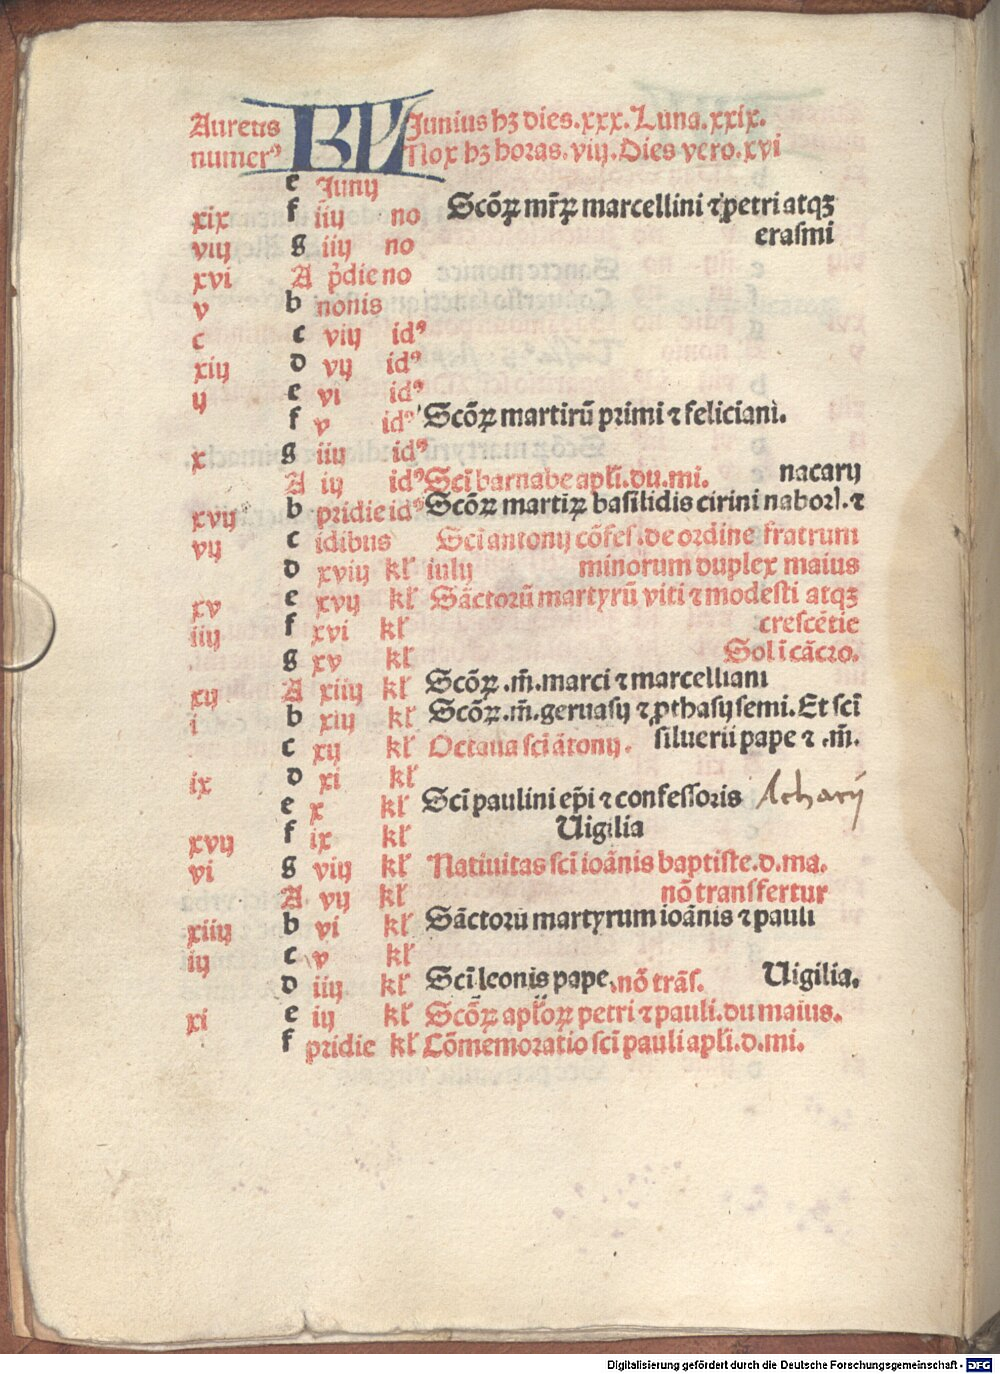 Aureus KL Junius hꝫ dies.xxx.Luna.xxix.
numerꝰ Nox hꝫ horas.viij.Dies vero.xvi
e Junij
xix f iiij no Scōꝝ mr̄ꝝ marcellini ⁊ petri atqꝫ
viij g iij no erasmi
xvi A p̄die no
v b nonis
c c viij idꝰ
xiij d vij idꝰ
ij e vi idꝰ
f v idꝰ Scōꝝ martirū primi ⁊ feliciani.
x g iiij idꝰ
A iij idꝰ Scī barnabe apl̄i.du.mi. nacarij
xviij b pridie idꝰ Scōꝝ martiꝝ basilidis cirini nabori. ⁊
vij c idibus Sci antonij cōfes.de ordine fratrum
d xviij kl̄ iulij minorum duplex maius
xv e xvij kl̄ Sāctorū martyrū viti ⁊ modesti atqꝫ
iiij f xvi kl̄ crescētie
g xv kl̄ Sol ī cācro.
xij A xiiij kl̄ Scōꝝ .m̄.marci ⁊ marcelliani
i b xiij kl̄ Scōꝝ.m̄.geruasij ⁊ ꝓthasij semi.Et scī
c xij kl̄ Octaua sci ātonij. siluerii pape ⁊ .m̄.
ix d xi kl̄
e x kl̄ Scī paulini ep̄i ⁊ confessoris Achacij
xvij f ix kl̄ Uigilia
vi g viij kl̄ Natiuitas scī ioānis baptiste.d.ma.
A vij kl̄ nō transfertur
xiiij b vi kl̄ Sāctorū martyrum ioānis ⁊ pauli
iij c v kl̄
d iiij kl̄ Scī leonis pape.nō trās. Uigilia.
xi e iij kl̄ Scōꝝ apl̄oꝝ petri ⁊ pauli.du maius.
f pridie kl̄ Cōmemoratio scī pauli apl̄i.d.mi.
Digitalisierung gefördert durch die Deutsche Forschungsgemeinschaft - DFG